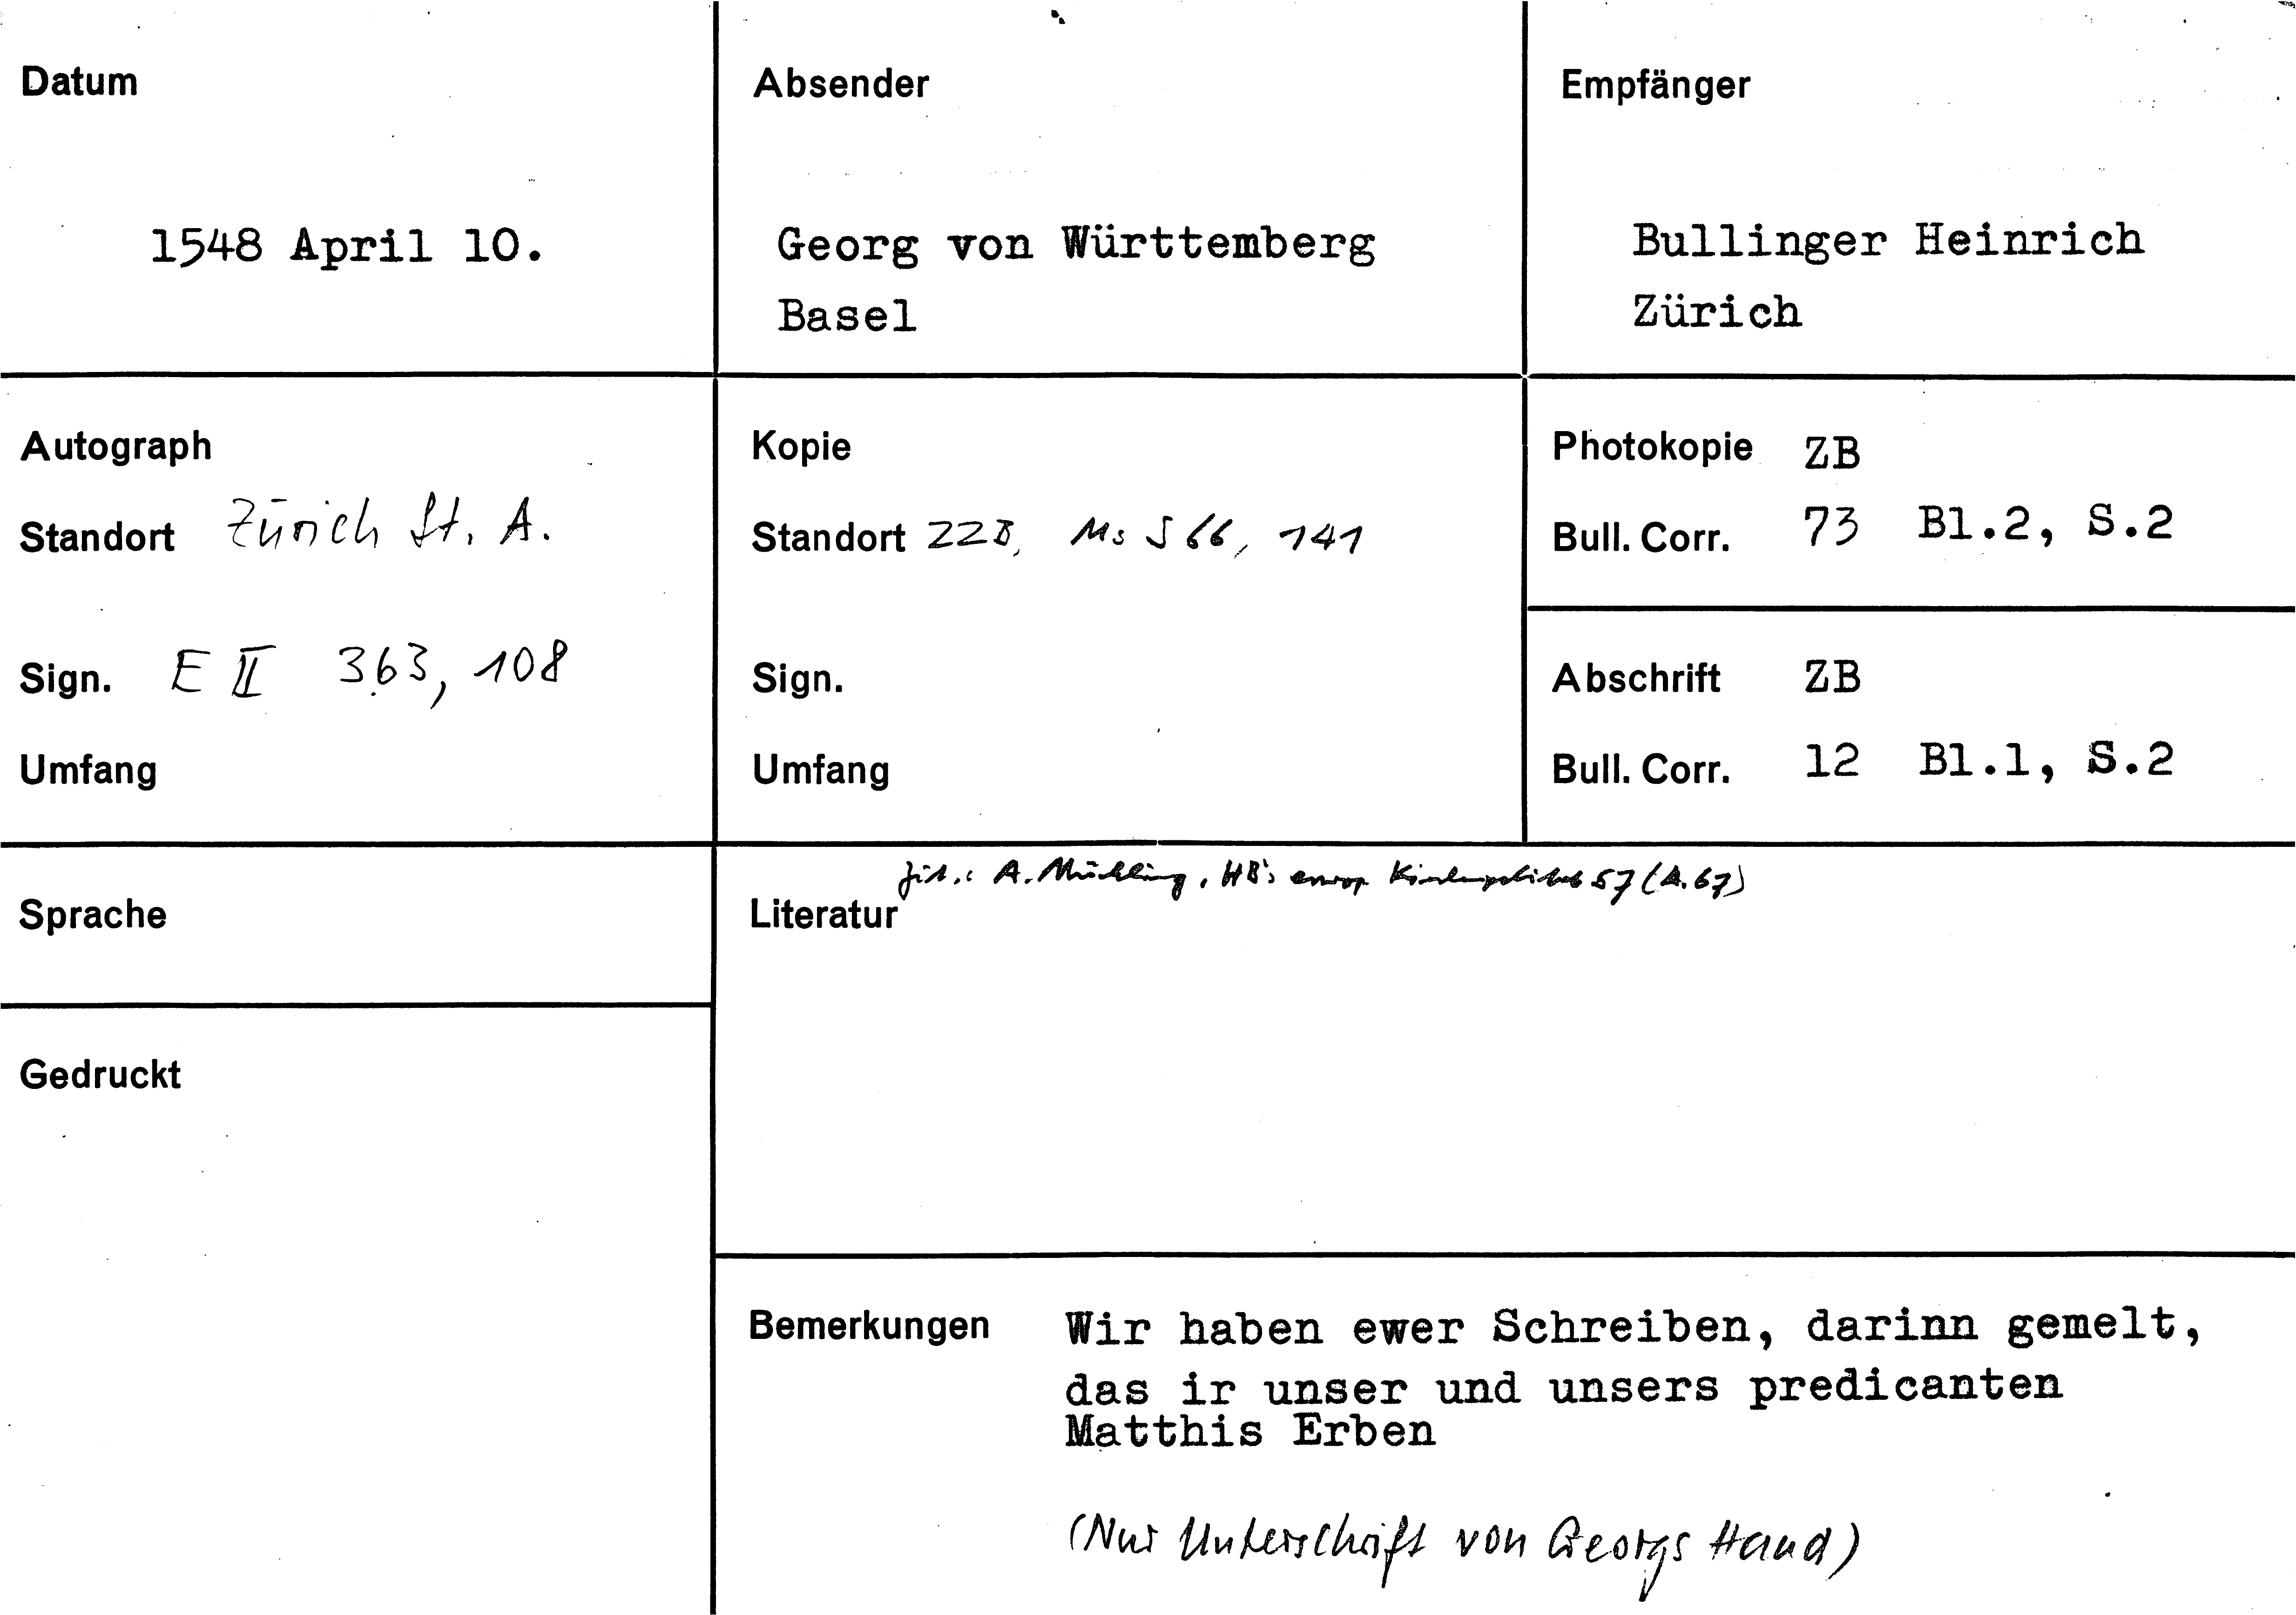 Datum
1548 April 10.
Absender
Georg von Württemberg
Basel
Empfänger
Bullinger Heinrich
Zürich
Autograph
Standort Zürich St. A.
Sign. E II 363, 108
Umfang
Kopie
Standort ZZB, Ms S 66, 141
Sign.
Umfang
Photokopie ZB
Bull. Corr. 73 Bl.2, S.2
Abschrift ZB
Bull. Corr. 12 Bl.1, S.2
Sprache
Gedruckt
zit.: A. Mühling, HB's europ. Kirchenpolitik 57 (A. 67)
Literatur
Bemerkungen Wir haben ewer Schreiben, darinn gemelt,
das ir unser und unsers predicanten
Matthis Erben
(Nur Unterschrift von Georgs Hand)